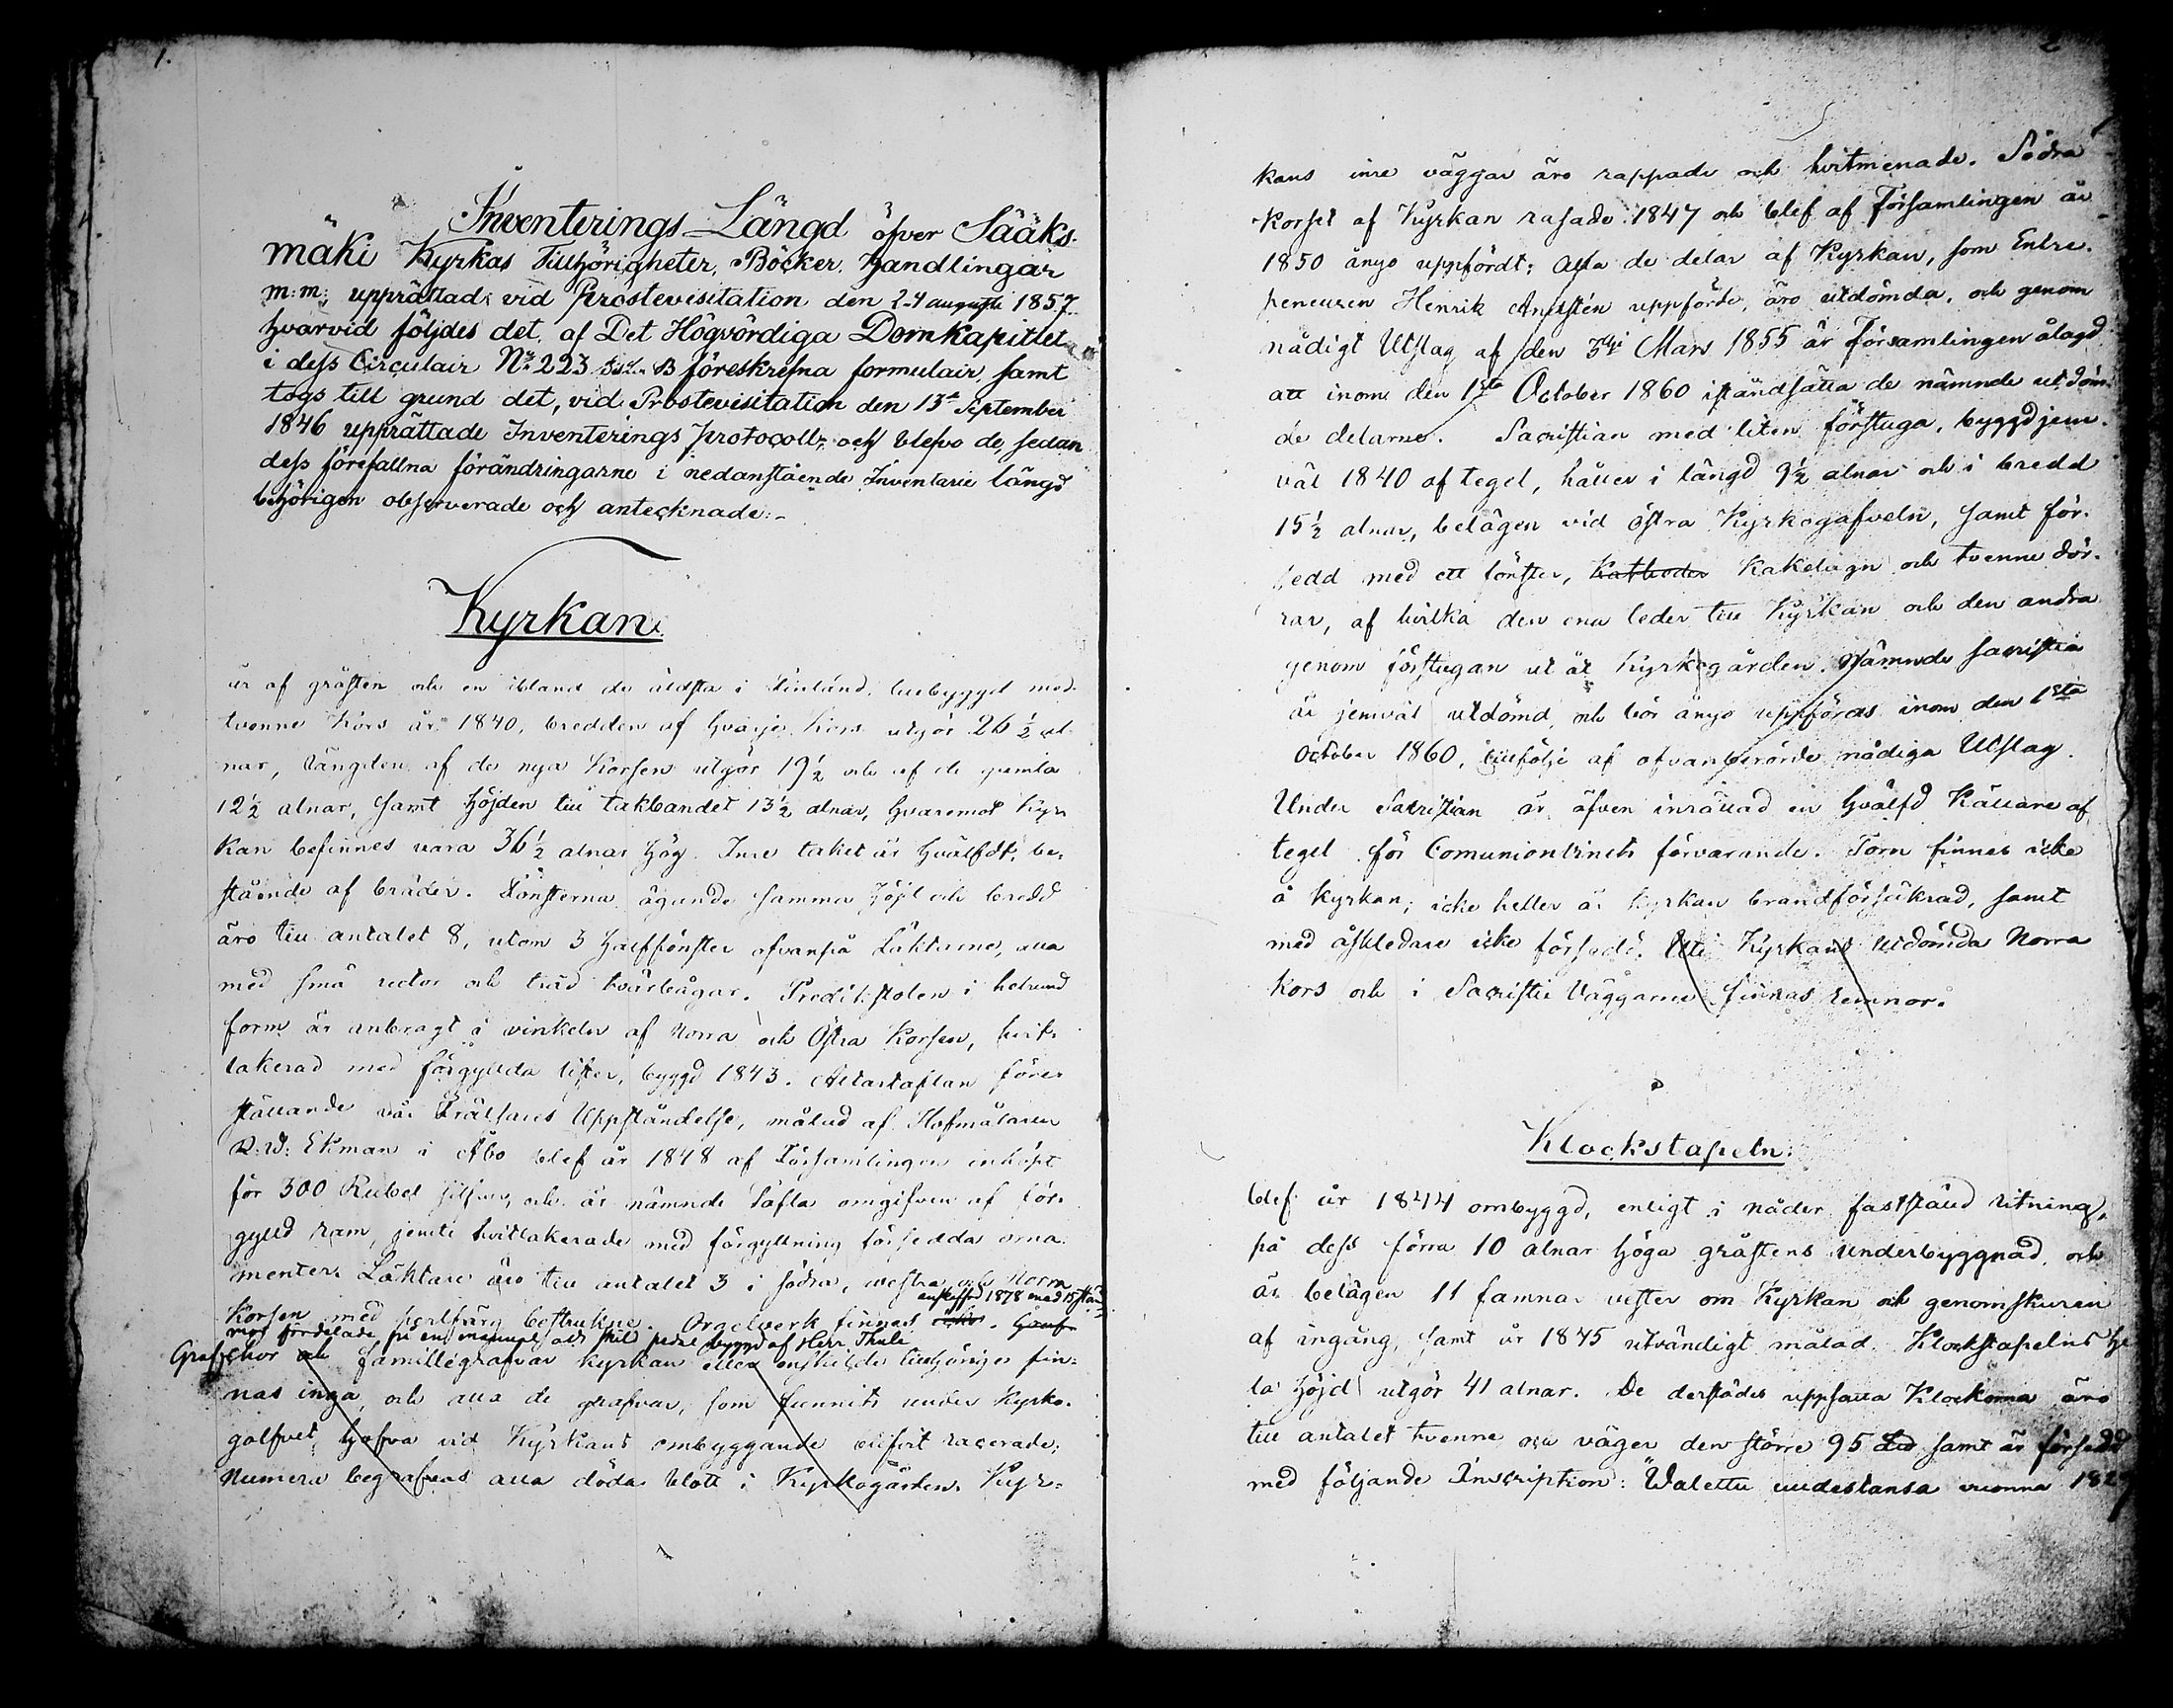 1.
Inventerings-Längd öfver Sääks-
mäki Kyrkas Tillhörigheter, Böcker, Handlingar
m:m: upprättad vid Prostevisitation den 24 augusti 1857.
hvarvid följdes det, af Det Högvördiga Domkapitlet
i dess Circulair No 223 B föreskrefna formulair, samt
togs till grund det, vid Prostevisitation den 13de September
1846 upprättade Inventerings Protocoll, och blefvo de, sedan
dess förefallna förändringarne i nedanstående Inventarie längd
behörigen observerade och antecknade:-
Kyrkan
är af gråsten och en ibland de äldsta i Finland, tillbyggd med
tvenne Kors år 1840, bredden af hvarje Kors utgör 26 ½ al-
nar, längden af de nya Korsen utgör 19½ och af de gamla
12½ alnar, samt höjden till takbandet 13½ alnar, hvaremot Kyr-
kan befinnes vara 36½ alnar hög. Inre taket är hvälfdt, be-
stående af bräder. Fönsterna ägande samma höjd och bredd
äro till antalet 8, utom 3 halffönster ofvanpå Läktarne, alla
med små rutor och träd tvärbågar. Predikstolen i helrund
form är anbragt i vinkeln af Norra och Östra Korsen, hvit-
lakerad med förgyllda lister, byggd 1843. Altartaflan före-
ställande vår Frälsares Uppståndelse, målad af Hofmålaren
R:W: Ekman i Åbo blef år 1848 af Församlingen inköpt
för 300 Rubel silfver, och är nämnde Tafla omgifven af för-
gylld ram, jemte hvitlakerade med förgyllning försedda orna-
menter. Läktare äro till antalet 3 i södra, westra och Norra
anskaffad 1878 med 15 stäm-
Korsen med perlfärg bestrukne. Orgelverk finnes icke. Graf-
mor fördelade på en manual och skild pedal byggd af Herr Thulé
Grafchor och familiegrafvar kyrkan eller enskilde tillhöriga fin-
nas inga, och alla de grafvar, som funnits under Kyrko-
golfvet, hafva vid Kyrkans ombyggande blifvit raserade.
Numera begrafvas alla döda blott i Kyrkogården. Kyr-
2
kans inre väggar äro rappade och hvitmenade. Södra
Korset af Kyrkan rasade 1847 och blef af Församlingen år
1850 ånyo uppfördt; Alla de delar af Kyrkan, som Entre-
preneuren Henrik uppförde, äro utdömda, och genom
nådigt Utslag af den 3dje Mars 1855 är Församlingen ålagd
att inom den 1sta October 1860 iståndsätta de nämnde utdöm-
de delarne. Sacristian med liten förstuga, byggd jem-
väl 1840 af tegel, håller i längd 9½ alnar och i bredd
15½ alnar, belägen vid östra Kyrkogafveln, samt för-
sedd med ett fönster, Kathoder Kakelugn och tvenne dör-
rar, af hvilka den ena leder till Kyrkan och den andra
genom förstugan ut åt Kyrkogården. Nämnde sacristia
är jemväl utdömd och bör ånyo uppföras inom den 1sta
October 1860, tillfölje af ofvanberörde nådiga Utslag.
Under Sacristian är äfven inrättad en hvälfd Källare af
tegel för Comunionvinets förvarande. Torn finnes icke
å kyrkan; icke heller är kyrkan brandförsäkrad, samt
med åskledare icke försedd. Uti Kyrkans utdömda Norra
Kors och i Sacristie Väggarne finnas remnor.
Klockstapeln:
blef år 1844 ombyggd, enligt i nåder fastställd ritning,
på dess förra 10 alnar höga gråstens underbyggnad och
är belägen 11 famnar vester om Kyrkan och genomskuren
af ingång, samt år 1845 utvändigt målad. Klockstapelns he-
la höjd utgör 41 alnar. De derstädes uppsatta Klockorna äro
till antalet tvenne och väger den större 95 samt är försedd
med följande Inscription: "Walettu uudestansa vuonna 1827